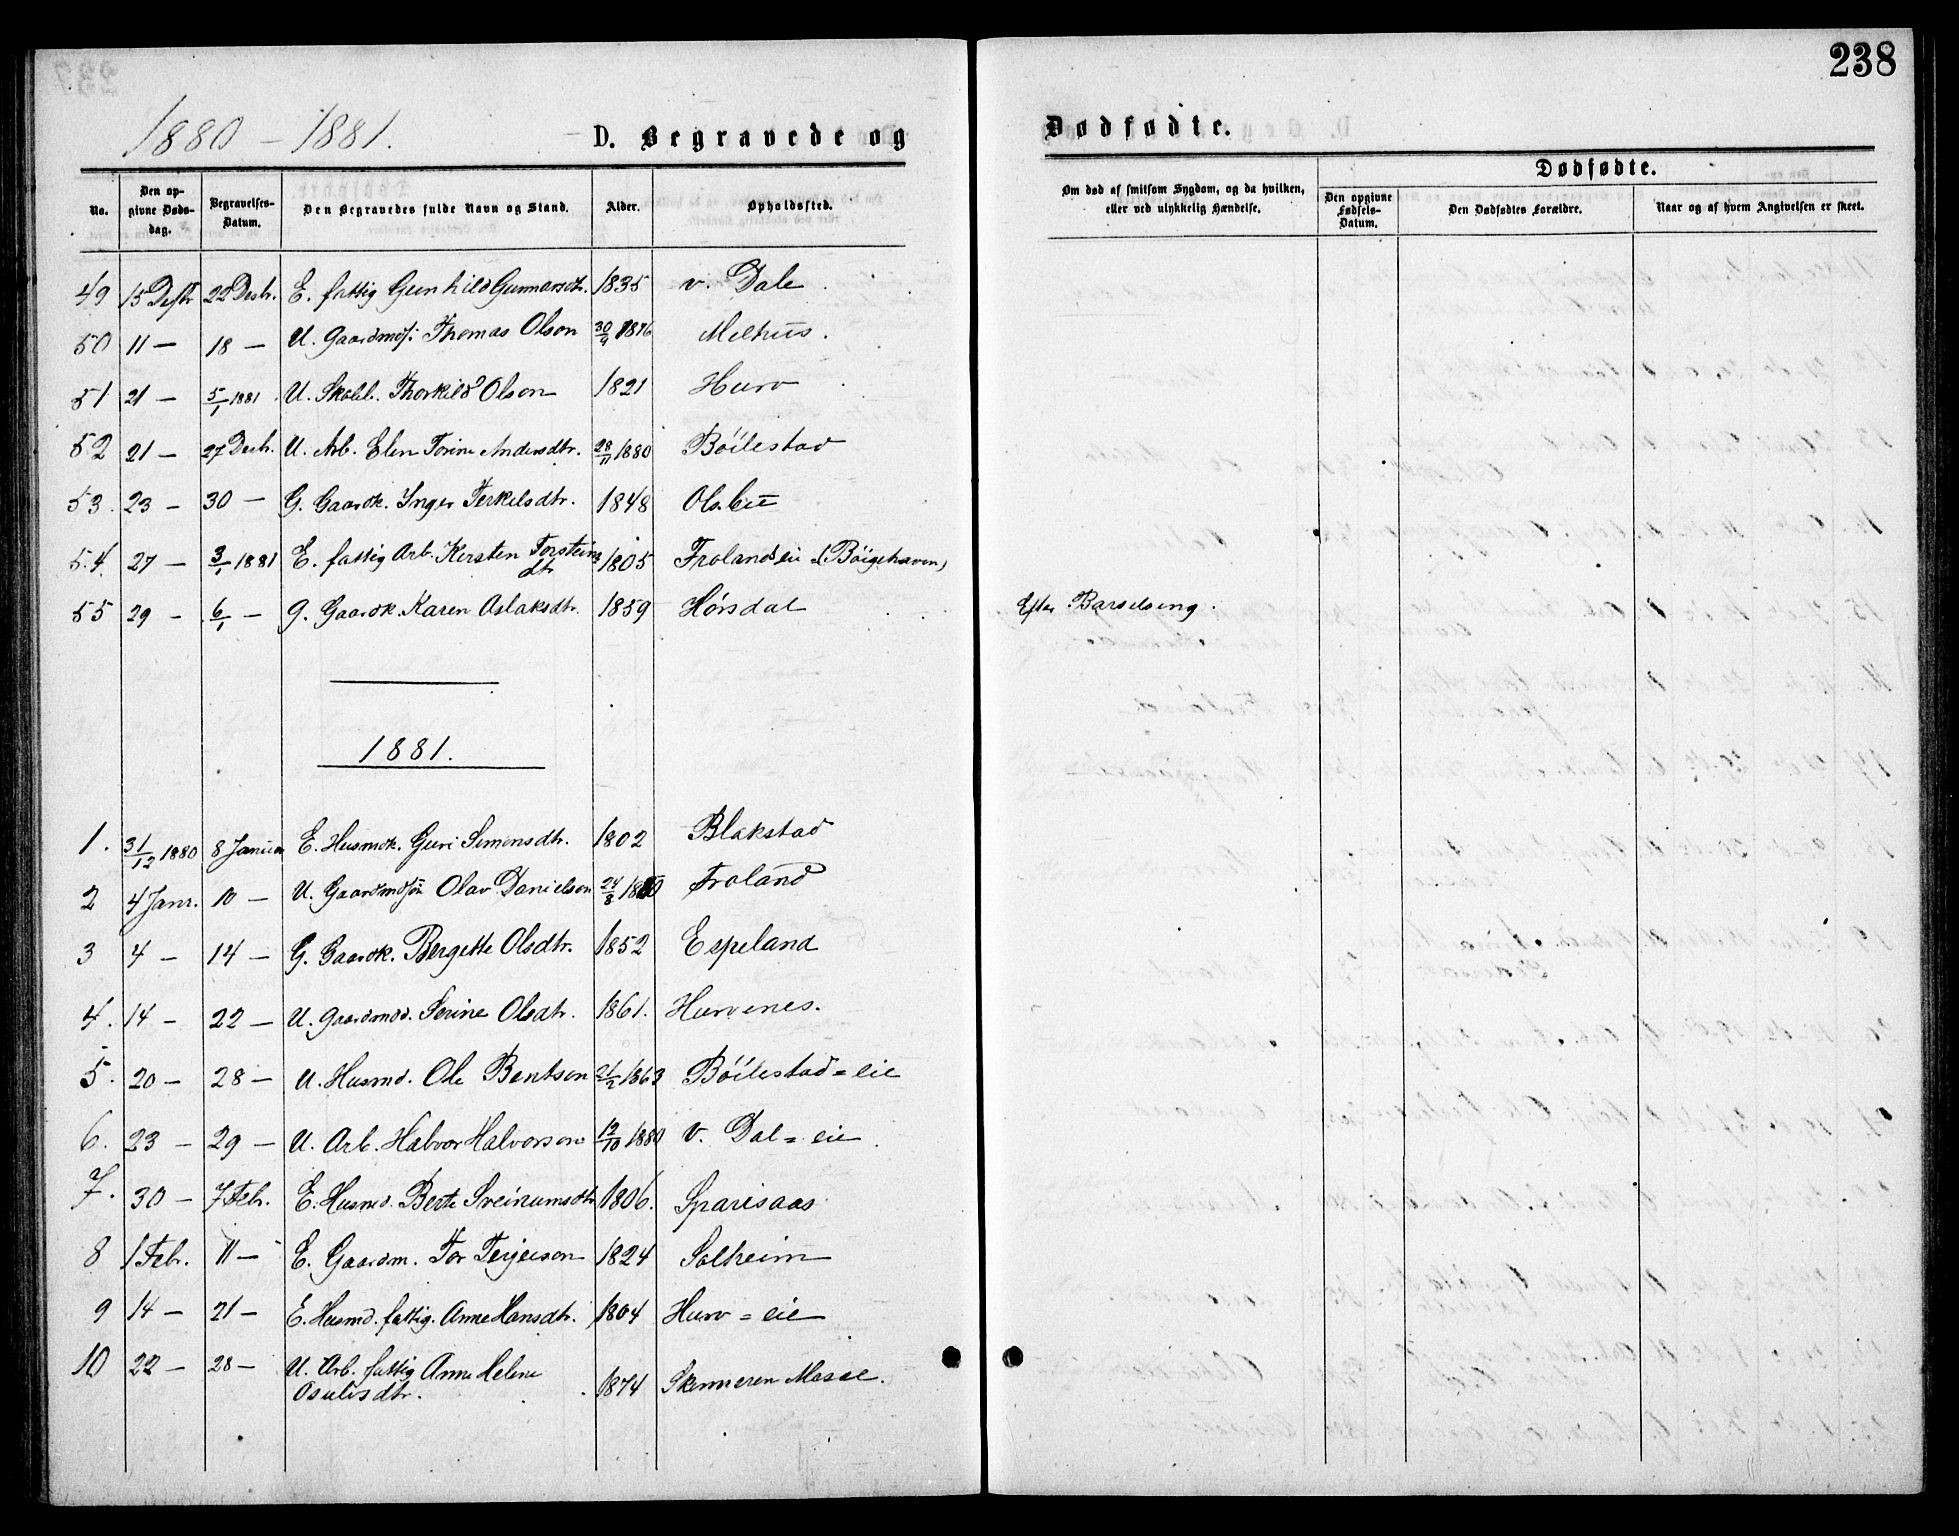 238
1880 – 1881.
D. Begravede og Dødfødte.
No.
Den opgivne Dødsdag.
Begravelses-Datum.
Den Begravedes fulde Navn og Stand.
Alder.
Opholdssted.
Om død af smitsom Sygdom, og da hvilken, eller ved ulykkelig Hændelse.
Dødfødte.
Den opgivne Fødsels-Datum.
Den Dødfødtes Forældre.
Naar og af hvem Angivelsen er skeet.
49 15 Desbr 22 Desbr. E. fattig Gunhild Gunnarsdtr. 1835 v. Dale
50 11 – 18 – U. Gaardmds. Thomas Olson 30/4 1876 Melhus.
51 21 – 5/1 1881 U. Skoll. Thorkild Olson 1821 Hurv
52 21 – 27 Desbr. U. Arb. Elen Torine Andersdtr. 28/11 1880 Böilestad
53. 23 – 30 – G. Gaardk. Inger Terkelsdtr. 1848 Olsbu
54. 27 – 3/1 1881 E. fattig Arb. Kersten Torsteins dtr 1805 Frolands eie (Böigehaven)
55 29 – 6/1 – G. Gaardk. Karen Aslaksdtr. 1859 Hörsdal Efter Barselseng.
1881.
1. 31/12 1880 8 Januar E. Husmdk. Guri Simonsdtr. 1802 Blakstad
2 4 Janr. 10 – U. Gaardmdsön Olav Danielson 24/8 1880 Froland
3 4 – 14 – G. Gaardk. Bergette Olsdtr. 1852 Espeland
4. 14 – 22 – U. Gaardmdd. Serine Olsdtr. 1861. Hurvenes.
5. 20 – 28 – U. Husmd. Ole Bentson 21/2 1863 Böilestad=eie
6. 23 – 29 – U. Arb. Halvor Halvorson 12/10 1880 v. Dal=eie
7. 30 – 7 Febr. E. Husmd. Berte Sveinumsdtr 1806. Sparisaas
8 1 Febr. 11 – E. Gaardm. Tor Terjeison 1824 Solheim
9 14 – 21 – E. Husmd. fattig. Anne Hansdtr. 1804 Hurv=eie
10 22 – 28 – U. Arb. fattig Anne Helene
Osulvsdtr. 1874 Skinneren Messel.